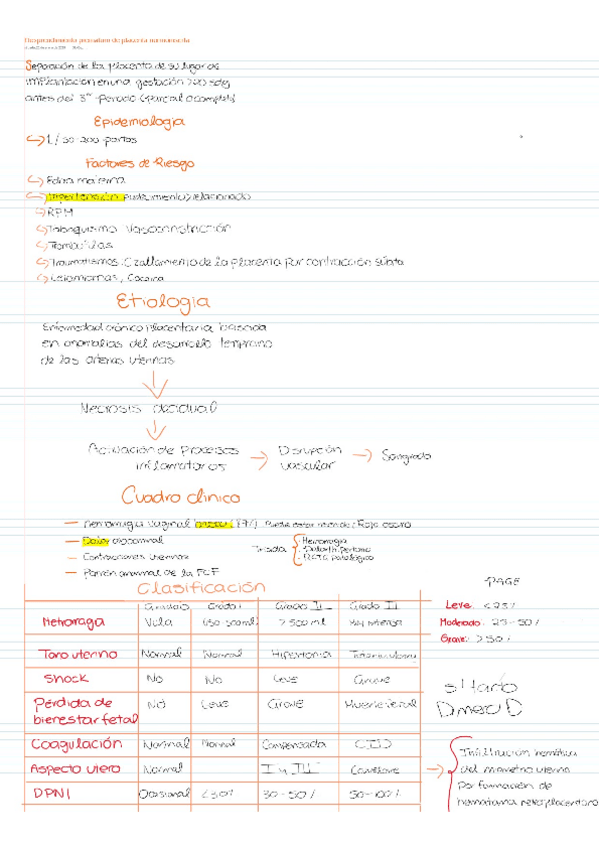 Desprendimiento prematuro de placenta normoinserta
Separación de la placenta de su lugar de
implantación en una gestación >20 sdg
antes del 3er periodo (parcial o completa)
Epidemiologia
1/ 200 partos
Factores de Riesgo
Edad materna
Hipertensión padecimientos relacionado
RPM
Tabaquismo Vasoconstricción
Trombofilias
Traumatismos: Cizallamiento de la placenta por contracción súbita
Leiomiomas, Cocaina
Etiologia
Enfermedad crónica placentaria basada
en anomalias del desarrollo temprano
de las arterias uterinas
Necrosis decidual
Activación de Procesos → Disrupción → Sangrado
inflamatorios vascular
Cuadro clinico
— Hemorragia vaginal Puede estar Rojo oscuro
— Dolor abdominal
Triada Hemorragia
— Contracciones uterinas
— Patron anormal de la FCF
Clasificación
PAGE
Grado 0 Grado I Grado II Grado III
Leve <25%
Metroraga Nula (150-500ml) >500ml
Moderado: 25-50%
Grave: >50%
Tono uterino Normal Normal Hipertonia
Shock No No Leve Grave
si Hado
Perdida de bienestar fetal No Leve Grave Muerte fetal
Dimero D
Coagulación Normal Normal Compensada CID
Infiltración hemática
Aspecto utero Normal Couvelaire →
del miometrio uterino
Por formación de
DPNI Ocasional <30% 30-50% 50-100%
hematoma retroplacentaro